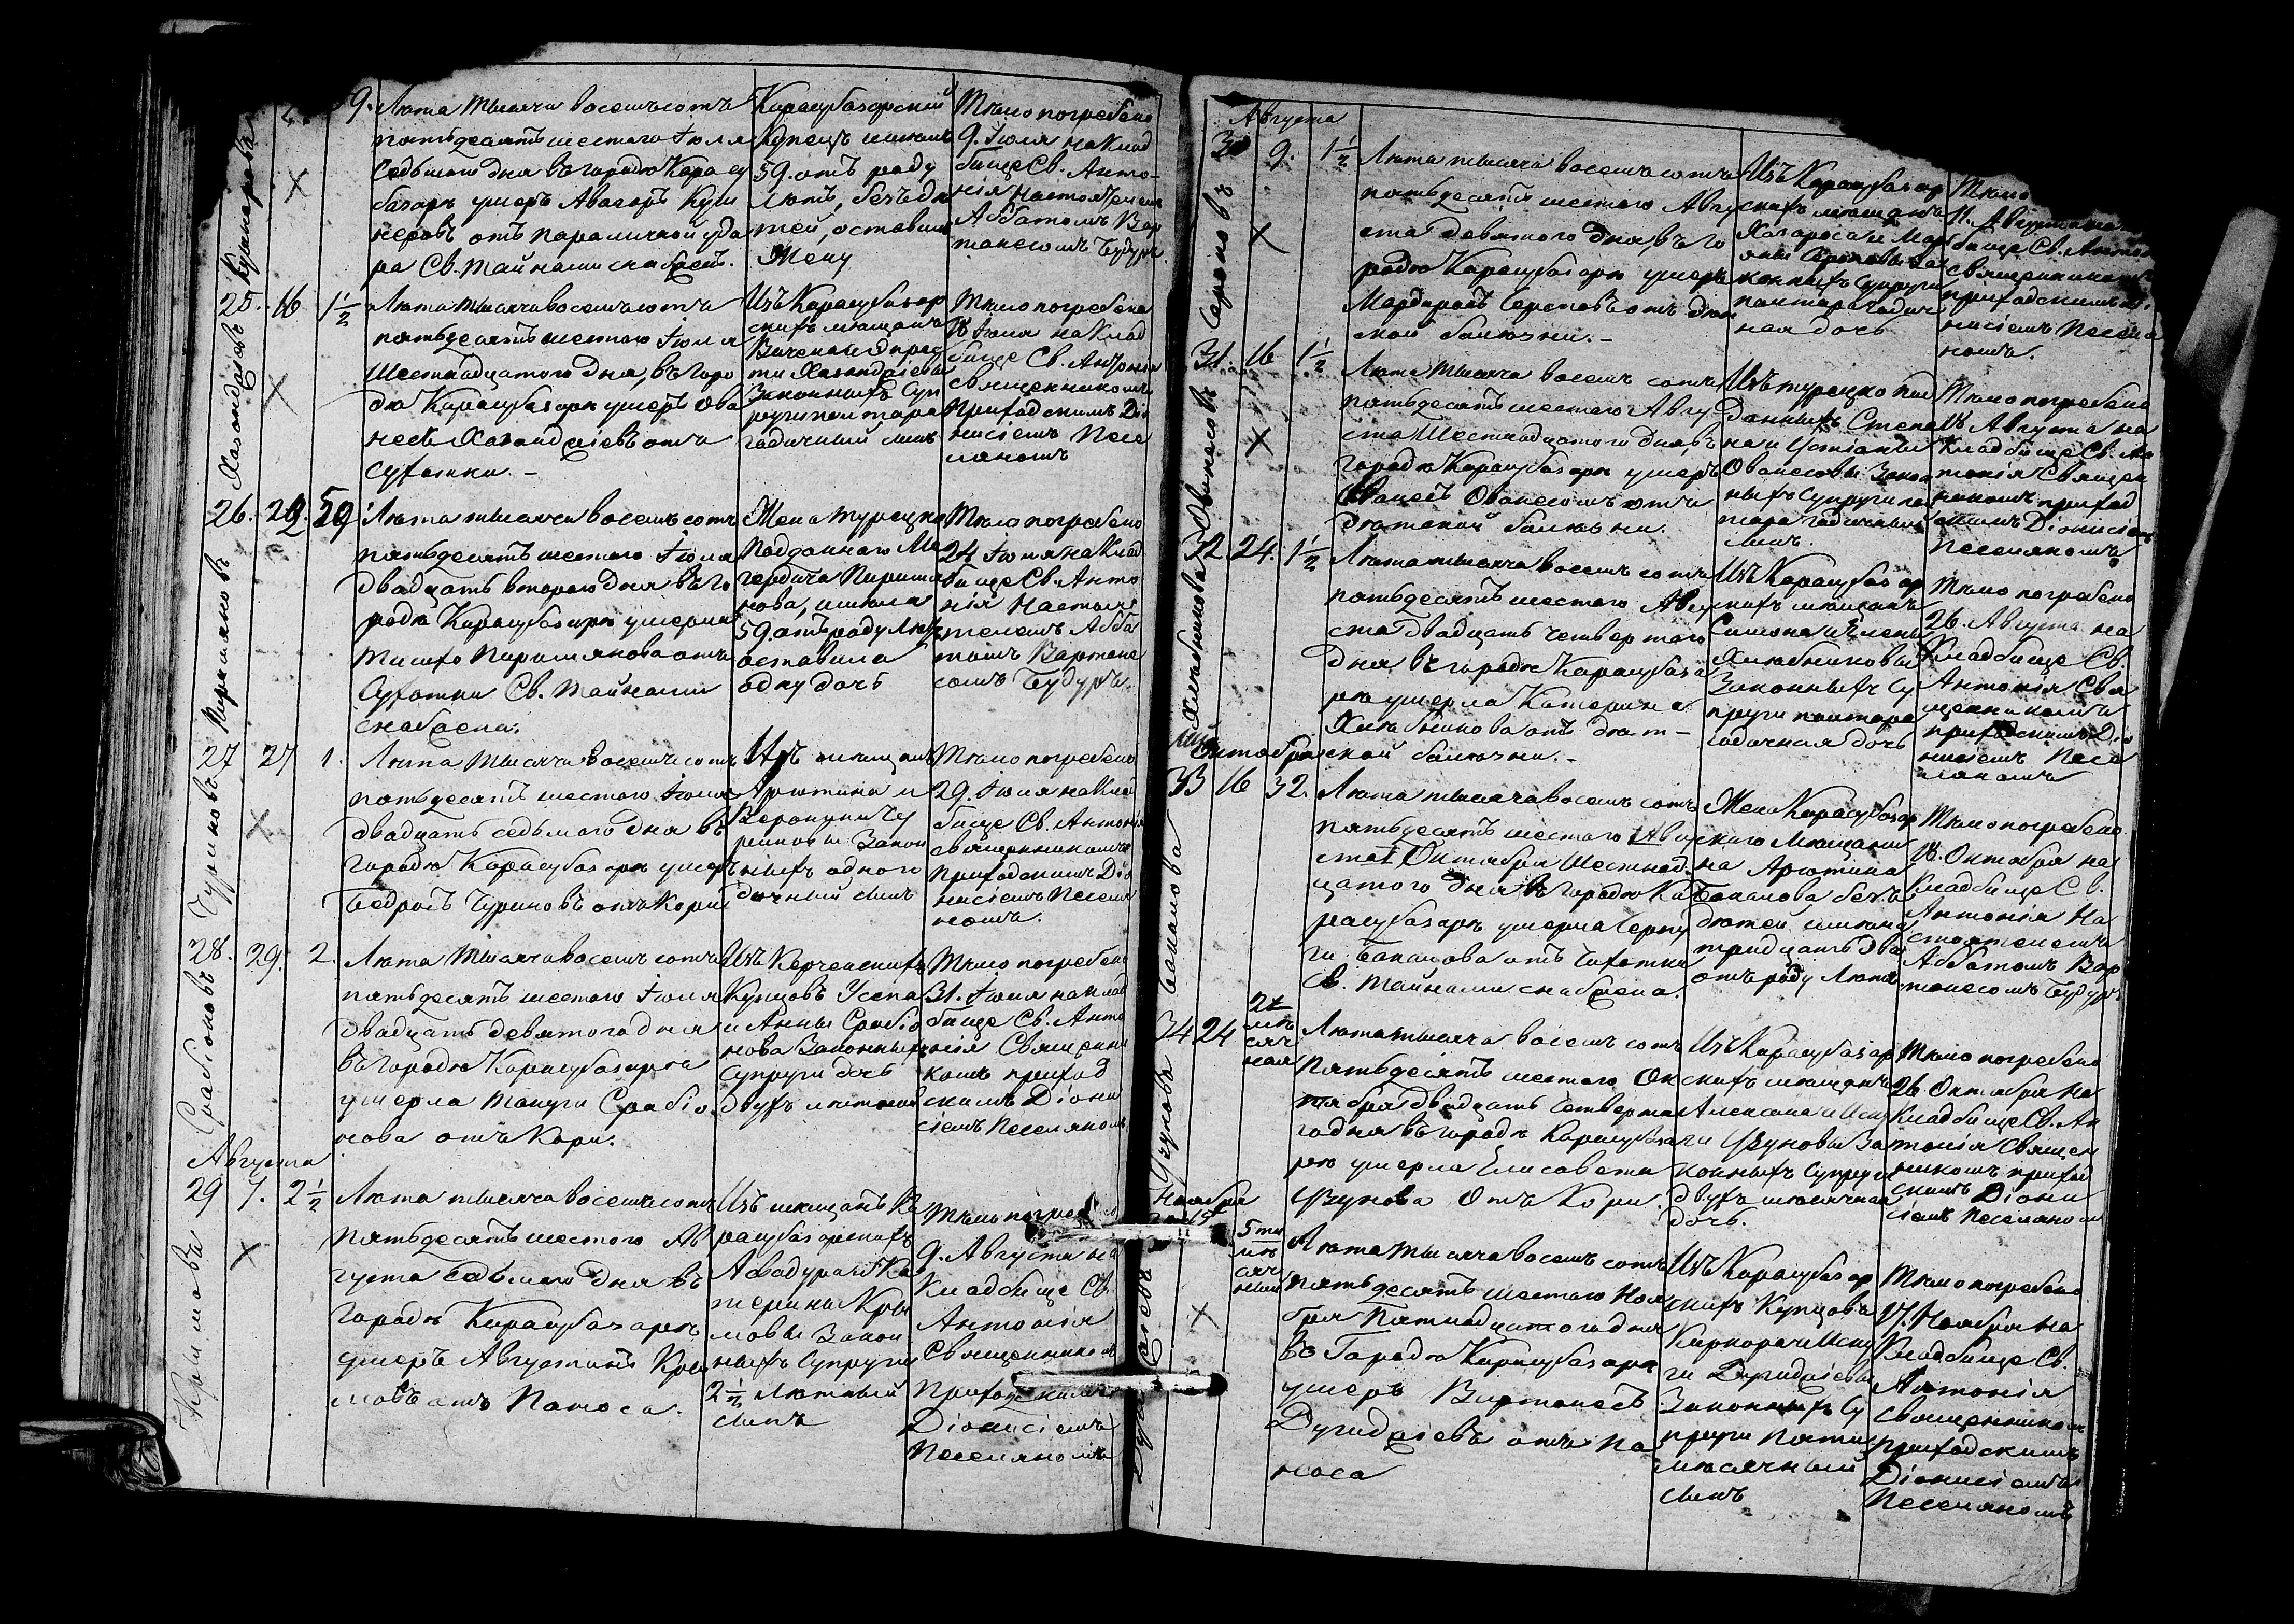 9. Лѣта тысяча восемьсотъ
пятьдесятъ шестого Іюля
Седьмого дня въ городѣ Карасу
базарѣ умеръ Авагоръ Куш
неровъ отъ параличной уда
ра Св. Тайнами снабденъ.
Карасубазарскій
Купецъ имѣлъ
59. отъ роду
лѣтъ, безъ дѣ
тей, оставилъ
Жену
Тѣло погребено
9. Іюля на Клад
бище Св. Анто-
нія Настоятелемъ
Аббатомъ Вар
танесомъ Будуръ.
Хазандіевъ
25. 16 1½ Лѣта тысяча восемьсотъ
пятьдесятъ шестого Іюля
Шестнадцатого дня, въ горо
дѣ Карасубазарѣ умеръ Ова
несъ Хазандіевъ отъ
Сухотки. –
Изъ Карасубазар
скихъ мѣщанъ
Законныхъ Суп
руги полтора
годичный сынъ
Тѣло погребено
18 Іюля на Клад
бище Св. Антонія
Священникомъ
Приходскимъ Діо
нисіемъ Песе
ляномъ
Пиримяновъ
26. 22. 59 Лѣта тысяча восемьсотъ
пятьдесятъ шестого Іюля
двадцать второго дня въ го
родѣ Карасубазарѣ умерла
Пиримянова отъ
Сухотки Св. Тайнами
снабдена.
Жена турецко
Подданнаго Ме
гердича Пирима
нова, имѣла
59 отъ роду лѣтъ
оставила
одну дочь
Тѣло погребено
24 Іюля на Клад
бище Св. Анто
нія Настоя
телемъ Абба
томъ Вартане
сомъ Будуръ.
Чуриновъ
27 27 1. Лѣта тысяча восемьсотъ
пятьдесятъ шестого Іюля
двадцать седьмого дня въ
городѣ Карасубазарѣ умеръ
Бедросъ Чуриновъ отъ Кори
Изъ мѣщанъ
Арютина и
Вероники Чу
риновы Закон
ныхъ одного
дичный сынъ
Тѣло погребено
29. Іюля на Клад
бище Св. Антонія
Священникомъ
Приходскимъ Діо
нисіемъ Песеля
номъ.
Срабіоновъ
28. 29. 2. Лѣта тысяча восемьсотъ
пятьдесятъ шестого Іюля
двадцать девятого дня
въ городѣ Карасубазарѣ
умерла Мануги Срабіо
нова отъ Кори.
Изъ Керченскихъ
Купцовъ Усепа
и Анны Срабіо
нова Законныхъ
Супруги дочь
двухъ лѣтняя
Тѣло погребено
31. Іюля на Клад
бище Св. Анто
нія Священни
комъ приход
скимъ Діони
сіемъ Песеляномъ
Августа
Крымова
29 7. 2½ Лѣта тысяча восемьсотъ
пятьдесятъ шестого Ав
густа Седьмого дня въ
городѣ Карасубазарѣ
умеръ Августинъ Кры
мовъ отъ Поноса.
Изъ мѣщанъ Ка
расубазарскихъ
Авадура и Ка
терины Кры
мовы Закон
ныхъ Супруги
2½ лѣтный
сынъ
Тѣло погребено
9. Августа на
Кладбище Св
Антонія
Священникомъ
Приходскимъ
Діонисіемъ
Песеляномъ
Августа
Серповъ
30 9. 1½ Лѣта тысяча восемьсотъ
пятьдесятъ шестого Авгу
ста девятого дня, въ го
родѣ Карасубазарѣ умеръ
Мардиросъ Серповъ отъ дѣт
ской болѣзни. –
Изъ Карасубазар
скихъ мѣщанъ
Хазароса и Мар
Серповы За
конныхъ Супруги
полтора годич
ная дочь
Тѣло
11. Августа на
бище Св. Антон
Священникомъ
приходскимъ Діо
нисіемъ Песеля
номъ.
Ованесовъ
31. 16 1½ Лѣта тысяча восемь сотъ
пятьдесятъ шестого Авгу
ста Шестнадцатого дня, въ
городѣ Карасубазарѣ умеръ
Ованесъ Ованесовъ отъ
дѣтской болѣзни.
Изъ турецко под
данныхъ Степа
на и
Ованесовы Закон
ныхъ Супруги пол
тора годичный
сынъ.
Тѣло погребено
18 Августа на
Кладбище Св. Ан
тонія Священ
никомъ приход
скимъ Діонисіемъ
Песеляномъ
Хлѣбникова
32 24. 1½ Лѣта тысяча восемь сотъ
пятьдесятъ шестого Авгу
ста двадцать четвертого
дня въ городѣ Карасубаза
рѣ умерла Катерина
Хлѣбникова отъ дѣт –
ской болѣзни. –
Изъ Карасубазар
скихъ мѣщанъ
Симона и Елены
Хлѣбниковы
Законныхъ Су
пруги полтора
годичная дочь
Тѣло погребено
26. Августа на
Кладбище Св.
Антонія Свя
щенникомъ
приходскимъ Діо
нисіемъ Песе
ляномъ
Октобра
33 16 32. Лѣта тысяча восемь сотъ
пятьдесятъ шестого Авгу
ста Октября Шестнад
цатого дня въ городѣ Ка
расубазарѣ умерла Серпу
ги Бапанова отъ Чахотки
Св. Тайнами снабдена.
Жена Карасубазар
скаго Мѣщани
на Арютина
Бапанова безъ
дѣтей, имѣла
тридцать два
отъ роду лѣтъ
Тѣло погребено
18. Октября на
Кладбище Св.
Антонія На
стоятелемъ
Аббатомъ Вар
танесомъ Будуръ
Узунова
34 24 2х мѣ
сяч
ная Лѣта тысяча восемь сотъ
Пятьдесятъ шестого Ок
тября двадцать Четверта
го дня въ городѣ Карасубаза
рѣ умерла Елисавета
Узунова отъ Кори.
Изъ Карасубазар
скихъ мѣщанъ
Алексана и
Узуновы За
конныхъ Супруги
двухъ мѣсячная
дочь.
Тѣло погребено
26 Октября на
Кладбище Св. Ан
тонія Священ
никомъ приход
скимъ Діони
сіемъ Песеляномъ
Ноября
15
5ти
мѣ
сяч
ный Лѣта тысяча восемь сотъ
пятьдесятъ шестого Ноя
бря Пятнадцатого дня
въ Городѣ Карасубазарѣ
умеръ Вартанесъ
Дугидзіевъ отъ по
носа
Изъ Карасубазар
скихъ Купцовъ
Киркора и
Дугидзіевы
Законныхъ Су
пруги Пяти
мѣсячный
сынъ
Тѣло погребено
17. Ноября на
Кладбище Св.
Антонія
Священникомъ
Приходскимъ
Діонисіемъ
Песеляномъ